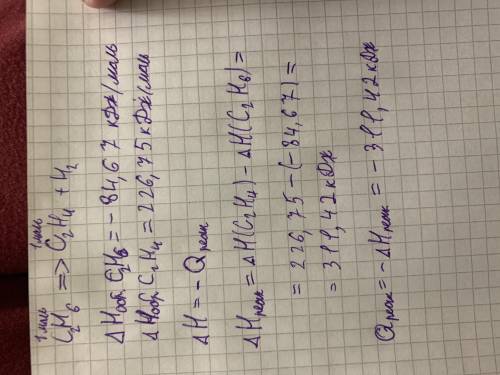 1 моль 1 моль
C₂H₆ => C₂H₄ + H₂
ΔHобр C₂H₆ = -84,67 кДж/моль
ΔHобр C₂H₄ = 226,75 кДж/моль
ΔH = -Qреак
ΔHреак = ΔH(C₂H₄) - ΔH(C₂H₆) =
= 226,75 - (-84,67) =
= 311,42 кДж
Qреак = -ΔHреак = -311,42 кДж